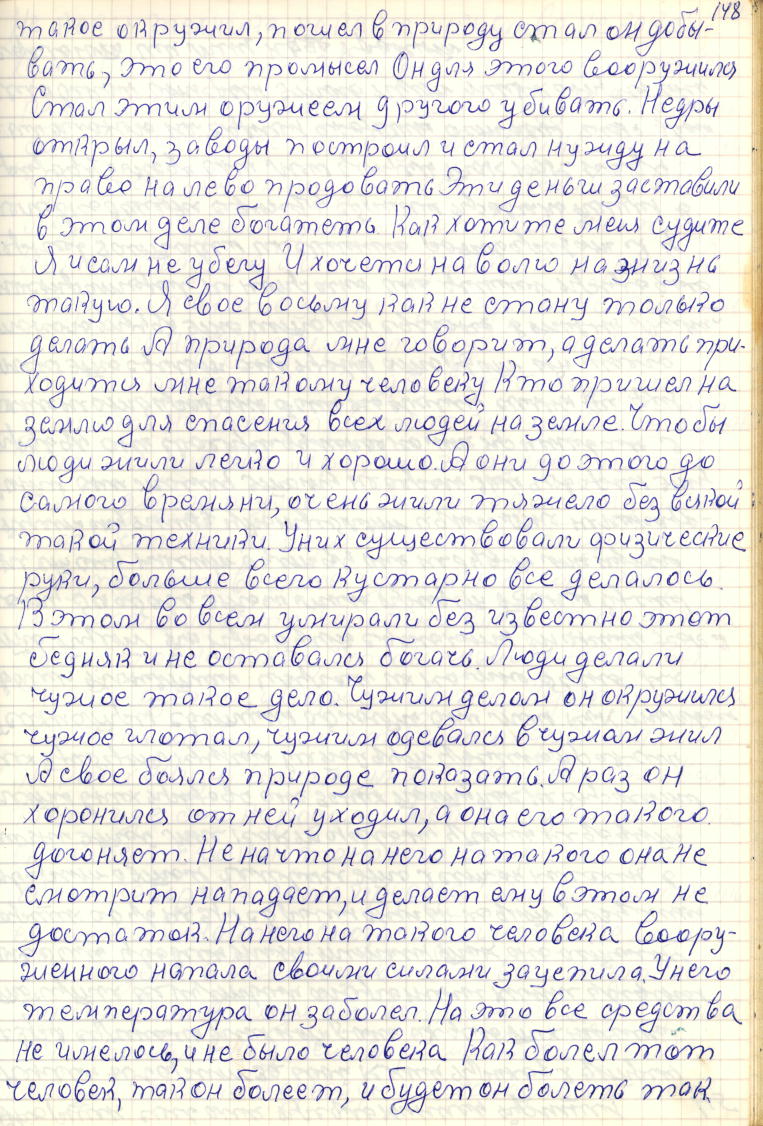 148
такое окружил, пошел в природу стал он добы-
вать, это его промысел Он для этого вооружился
Стал этим оружеем другого убивать. Недры
открыл, заводы построил и стал нужду на
право налево продовать Эти деньги заставили
в этом деле богатеть. Как хотите меня судите
Я и сам не убегу И хочется на волю на жизнь
такую. Я свое восьму как не стану только
делать А природа мне говорит, а делать при-
ходится мне такому человеку Кто пришел на
землю для спасения всех людей на земле. Чтобы
люди жили легко и хорошо. А они до этого до
самого времяни, очень жили тяжело без всякой
такой техники. У них существовали физические
руки, больше всего кустарно все делалось.
В этом во всем умирали без известно этот
бедняк и не оставался богачь. Люди делали
чужое такое дело. Чужим делом он окружился
чужое глотал, чужим одевался в чужом жил
А свое боялся природе показать. А раз он
хоронился от ней уходил, а она его такого
догоняет. Не на что на него на такого она не
смотрит нападает, и делает ему в этом не
достаток. На него на такого человека воору-
женного напала своими силами зацепила. У него
температура он заболел. На это все средства
не имелось, и не было человека Как болел тот
человек, так он болеет, и будет он болеть так